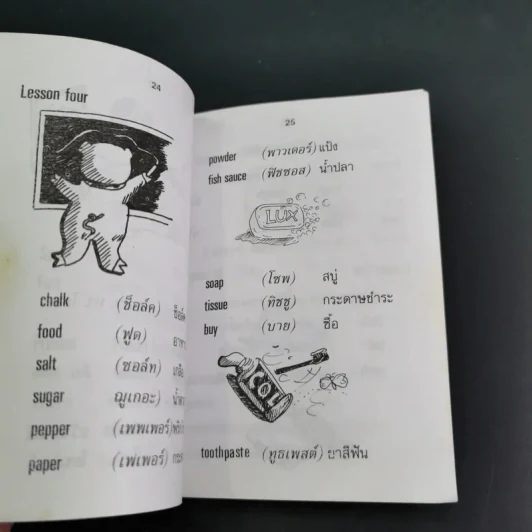 24
Lesson four
chalk (ช็อล์ค)
food (ฟูด)
salt (ซอล์ท)
sugar ฌูเกอะ)
pepper (เพพเพอร์)
paper (เพเพอร์)
25
powder (พาวเดอร์) แป้ง
fish sauce (ฟิชซอส) น้ำปลา
LUX
soap (โซพ) สบู่
tissue (ทิชชู) กระดาษชำระ
buy (บาย) ซื้อ
COL
toothpaste (ทูธเพสต์) ยาสีฟัน